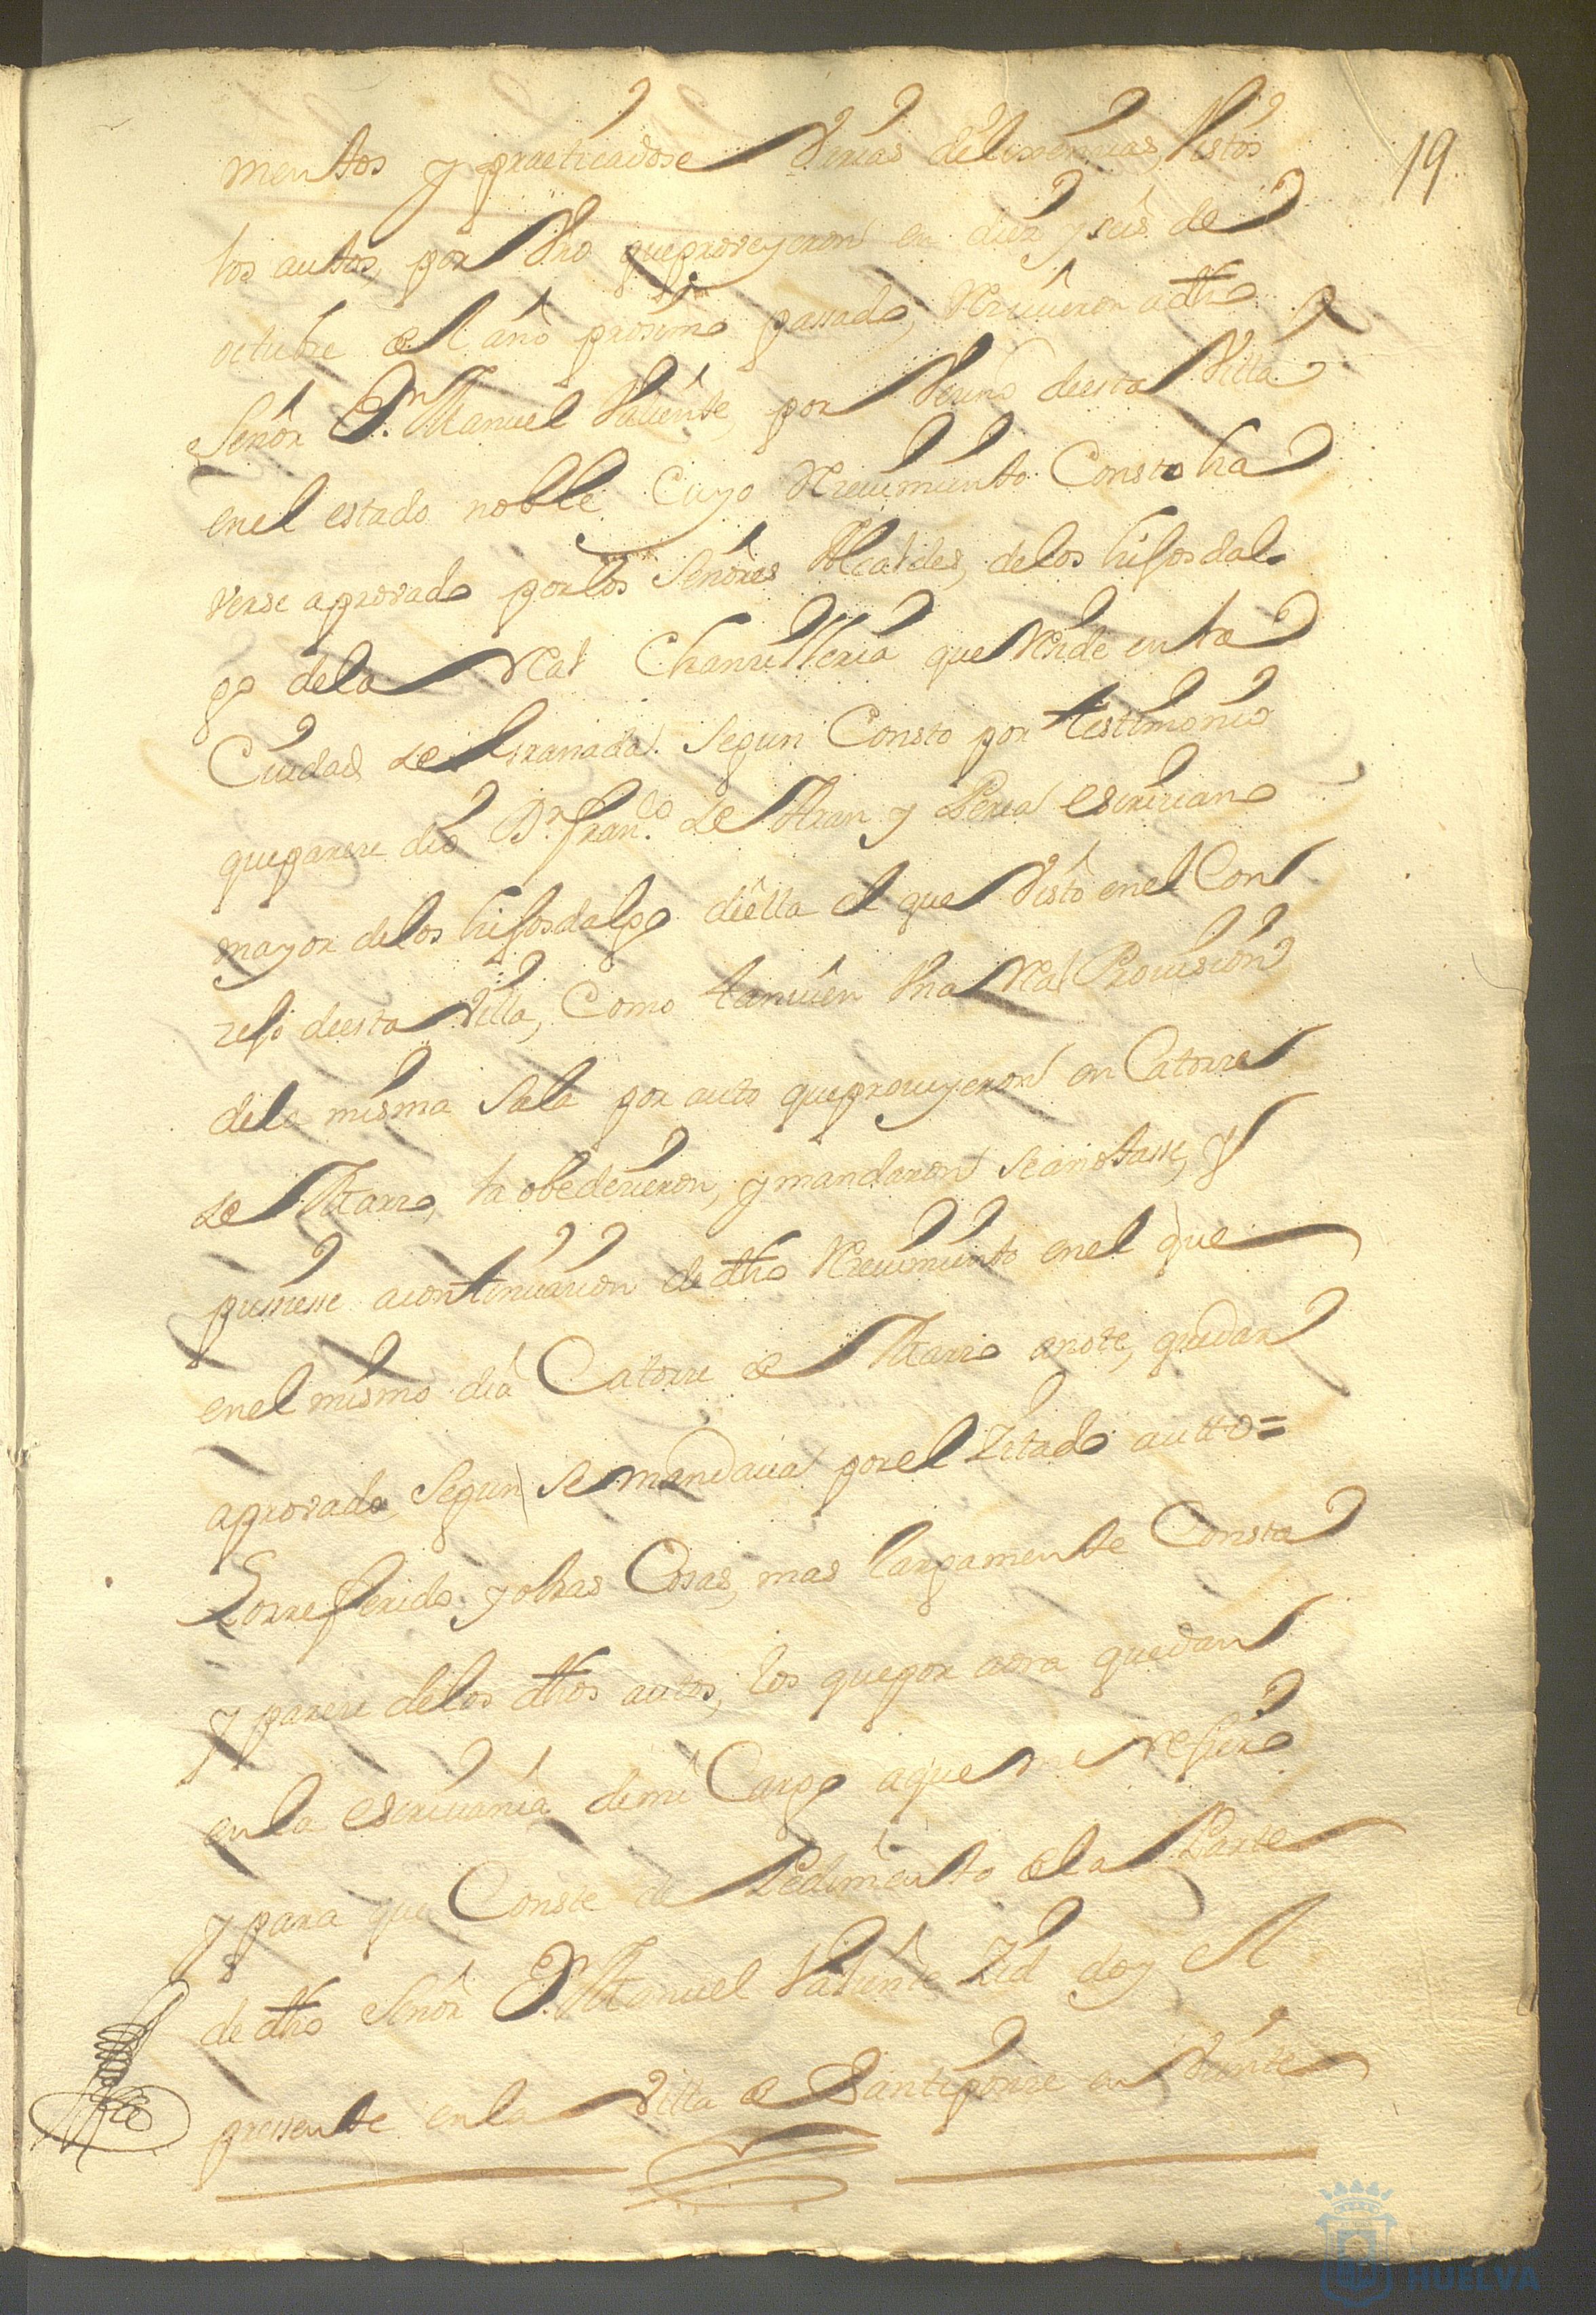 19
mentos y practicadose Varias delixencias, Vistos
los autos, por Vno queproveyeron en diez y seis de
octubre del año proximo passado, Rezivieron adho
Señor Dn. Manuel Valiente, por Vezino deesta Villa
enel estado noble Cuyo Rezevimiento Consto ha
verse aprovado porlos Señores Alcaldes, delos hijosdal
go dela Real Chanzilleria que Reside enla
Ciudad de Granada. Segun Consto por testimonio
queparece dio Dn. Franco. de y Perea escriviano
mayor delos hijosdalgo deella el que Visto enel Con
zejo deesta Villa, Como tanvien Vna Real Provision
dela misma Sala por auto queproveyeron en Catorze
de Marzo, la obedezieron, y mandaron Seanotasse, y
pusiesse acontinuazion de dho Rezevimiento enel que
enel mismo dia Catorze de Marzo anote, quedar
aprovado Segun Se mandava porel Zitado autto=
Lorreferido y otras Cosas, mas largamente Consta
y pareze delos dhos autos, los quepor aora quedan
enla escrivania demi Cargo aque me refiero
y para que Conste de Pedimento dela Parte
de dho Señor Dn. Manuel Valiente Zid doy el
pressente enla Villa de Santiponze en Veinte
HUELVA